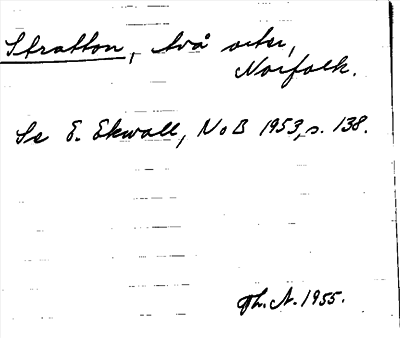 Stratton, två orter,
Norfolk.
Se E. Ekwall, NoB 1953, s. 138.
Th. A. 1955.